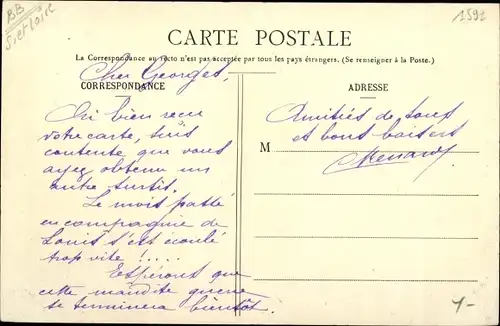 BB
S.et Loire
1591
CARTE POSTALE
La Correspondance au recto n'est pas acceptée par tous les pays étrangers. (Se renseigner à la Poste.)
CORRESPONDANCE
ADRESSE
Cher Georges,
Ai bien reçu
votre carte, suis
contente que vous
ayez obtenu un
autre sursis.
Le mois passé
en compagnie de
Louis s'est écoulé
trop vite !....
Espérons que
cette maudite guerre
se terminera bientôt.
Amitiés de tous
et bons baisers
M
1-